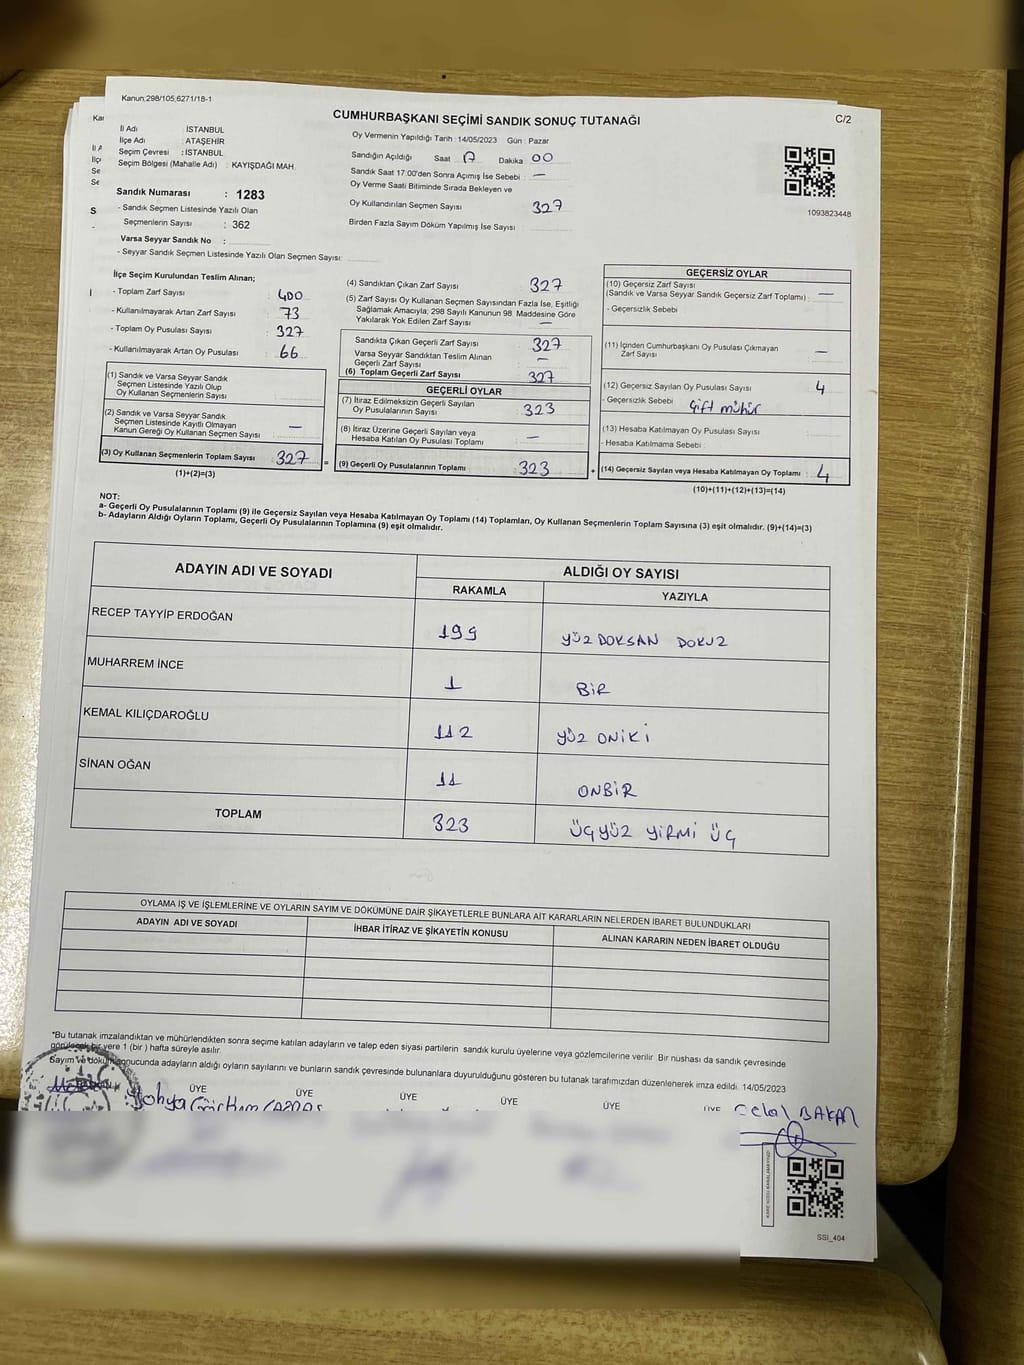 Kanun;298/105,6271/18-1
CUMHURBAŞKANI SEÇİMİ SANDIK SONUÇ TUTANAĞI
C/2
İl Adı : İSTANBUL
İlçe Adı : ATAŞEHİR
Seçim Çevresi : İSTANBUL
Seçim Bölgesi (Mahalle Adı) : KAYIŞDAĞI MAH.
Sandık Numarası : 1283
- Sandık Seçmen Listesinde Yazılı Olan
Seçmenlerin Sayısı : 362
Varsa Seyyar Sandık No :
- Seyyar Sandık Seçmen Listesinde Yazılı Olan Seçmen Sayısı:
Oy Vermenin Yapıldığı Tarih :14/05/2023 Gün : Pazar
Sandığın Açıldığı Saat 17 Dakika 00
Sandık Saat 17:00'den Sonra Açımış İse Sebebi : —
Oy Verme Saati Bitiminde Sırada Bekleyen ve
Oy Kullandırılan Seçmen Sayısı 327
Birden Fazla Sayım Döküm Yapılmış İse Sayısı :
1093823448
İlçe Seçim Kurulundan Teslim Alınan;
- Toplam Zarf Sayısı : 400
- Kullanılmayarak Artan Zarf Sayısı : 73
- Toplam Oy Pusulası Sayısı : 327
- Kullanılmayarak Artan Oy Pusulası : 66
(1) Sandık ve Varsa Seyyar Sandık
Seçmen Listesinde Yazılı Olup
Oy Kullanan Seçmenlerin Sayısı :
(2) Sandık ve Varsa Seyyar Sandık
Seçmen Listesinde Kayıtlı Olmayan
Kanun Gereği Oy Kullanan Seçmen Sayısı : —
(3) Oy Kullanan Seçmenlerin Toplam Sayısı : 327
(1)+(2)=(3)
(4) Sandıktan Çıkan Zarf Sayısı : 327
(5) Zarf Sayısı Oy Kullanan Seçmen Sayısından Fazla İse, Eşitliği
Sağlamak Amacıyla; 298 Sayılı Kanunun 98. Maddesine Göre
Yakılarak Yok Edilen Zarf Sayısı : —
Sandıkta Çıkan Geçerli Zarf Sayısı : 327
Varsa Seyyar Sandıktan Teslim Alınan
Geçerli Zarf Sayısı : —
(6) Toplam Geçerli Zarf Sayısı : 327
GEÇERLİ OYLAR
(7) İtiraz Edilmeksizin Geçerli Sayılan
Oy Pusulalarının Sayısı : 323
(8) İtiraz Üzerine Geçerli Sayılan veya
Hesaba Katılan Oy Pusulası Toplamı : —
= (9) Geçerli Oy Pusulalarının Toplamı : 323
GEÇERSİZ OYLAR
(10) Geçersiz Zarf Sayısı
(Sandık ve Varsa Seyyar Sandık Geçersiz Zarf Toplamı) : —
- Geçersizlik Sebebi
(11) İçinden Cumhurbaşkanı Oy Pusulası Çıkmayan
Zarf Sayısı : —
(12) Geçersiz Sayılan Oy Pusulası Sayısı : 4
- Geçersizlik Sebebi : Çift mühür
(13) Hesaba Katılmayan Oy Pusulası Sayısı :
- Hesaba Katılmama Sebebi :
+ (14) Geçersiz Sayılan veya Hesaba Katılmayan Oy Toplamı : 4
(10)+(11)+(12)+(13)=(14)
NOT:
a- Geçerli Oy Pusulalarının Toplamı (9) ile Geçersiz Sayılan veya Hesaba Katılmayan Oy Toplamı (14) Toplamları, Oy Kullanan Seçmenlerin Toplam Sayısına (3) eşit olmalıdır. (9)+(14)=(3)
b- Adayların Aldığı Oyların Toplamı, Geçerli Oy Pusulalarının Toplamına (9) eşit olmalıdır.
ADAYIN ADI VE SOYADI ALDIĞI OY SAYISI
RAKAMLA YAZIYLA
RECEP TAYYİP ERDOĞAN 199 YÜZ DOKSAN DOKUZ
MUHARREM İNCE 1 BİR
KEMAL KILIÇDAROĞLU 112 YÜZ ONİKİ
SİNAN OĞAN 11 ONBİR
TOPLAM 323 ÜÇYÜZ YİRMİ ÜÇ
OYLAMA İŞ VE İŞLEMLERİNE VE OYLARIN SAYIM VE DÖKÜMÜNE DAİR ŞİKAYETLERLE BUNLARA AİT KARARLARIN NELERDEN İBARET BULUNDUKLARI
ADAYIN ADI VE SOYADI İHBAR İTİRAZ VE ŞİKAYETİN KONUSU ALINAN KARARIN NEDEN İBARET OLDUĞU
*Bu tutanak imzalandıktan ve mühürlendikten sonra seçime katılan adayların ve talep eden siyasi partilerin sandık kurulu üyelerine veya gözlemcilerine verilir. Bir nushası da sandık çevresinde
görülecek bir yere 1 (bir ) hafta süreyle asılır.
Sayım ve döküm sonucunda adayların aldığı oyların sayılarını ve bunların sandık çevresinde bulunanlara duyurulduğunu gösteren bu tutanak tarafımızdan düzenlenerek imza edildi. 14/05/2023
ÜYE ÜYE ÜYE ÜYE ÜYE ÜYE
Celal BAKAN
SSI_404